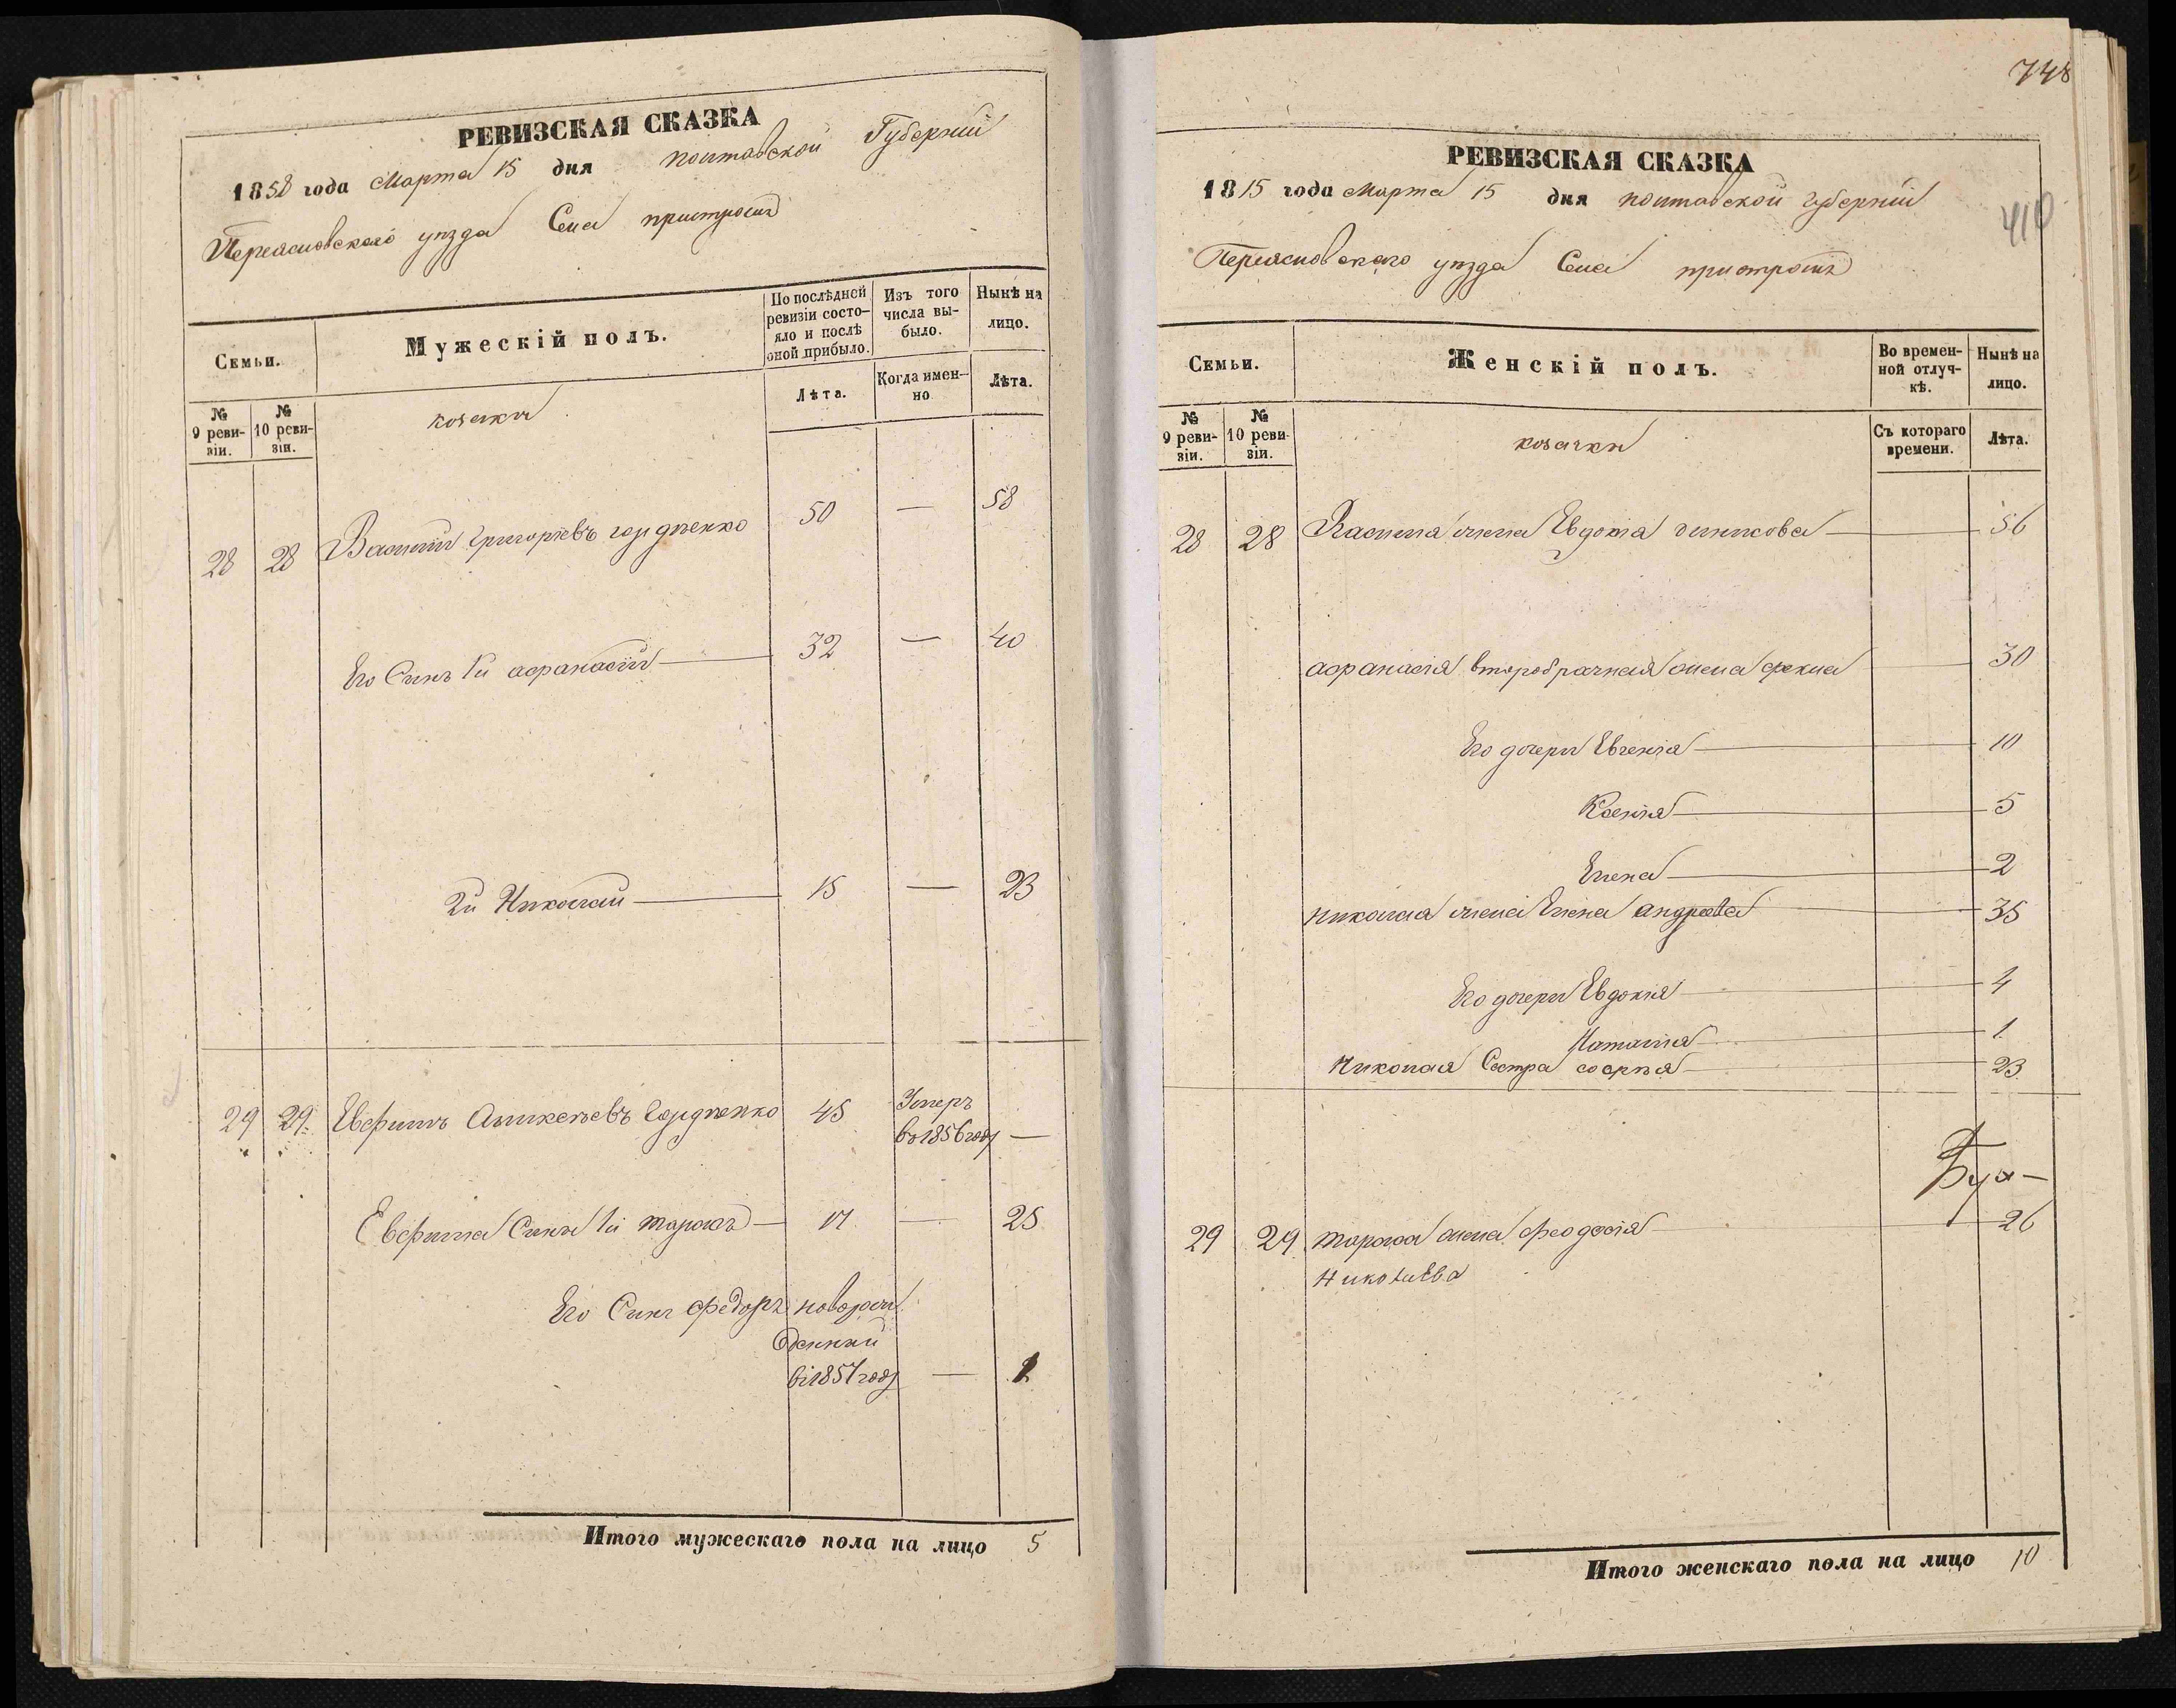 РЕВИЗСКАЯ СКАЗКА
1858 года Марта 15 дня полтавской Губерний
Переясловского уезда Села пристромъ
Семьи.
Мужескій полъ.
По послѣдней ревизіи состояло и послѣ оной прибыло.
Изъ того числа выбыло.
Нынѣ на лицо.
№ 9 ревизіи.
№ 10 ревизіи.
козаки
Лѣта.
Когда именно
Лѣта.
28 28 Василий Григорьевъ 50 — 58
Его Сынъ 1й афанасій 32 — 40
2й Николай 15 — 23
29 29. Евфимъ 45 Умеръ
въ 1856 году —
Евфима Сынъ 1й тарасъ 17 — 25
Его Сынъ федоръ новорож
денный
въ 1857 году —
Итого мужескаго пола на лицо 5
748
410
РЕВИЗСКАЯ СКАЗКА
1815 года Марта 15 дня полтавской губерній
Переясловскаго уезда Села пристромъ
Семьи.
Женскій полъ.
Во временной отлучкѣ.
Нынѣ на лицо.
№ 9 ревизіи.
№ 10 ревизіи.
козачки
Съ котораго времени.
Лѣта.
28 28 Василия жена Евдокія 56
афанасія второбрачная жена фекла 30
Его дочери Евгенія 10
Ксенія 5
Елена 2
николая жена Елена андреева 35
Его дочери Евдокія 4
Наталія 1
Николая Сестра софія 23
29 29 тараса жена феодосія 26
Николаева
Итого женскаго пола на лицо 10